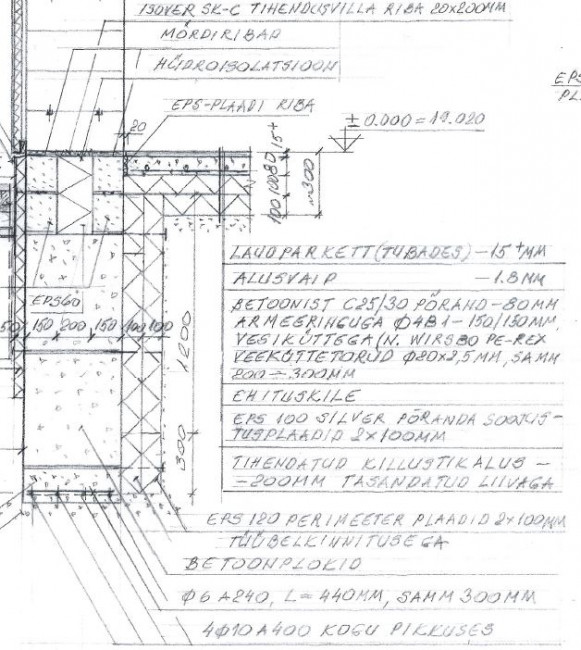 ISOVER SK-C TIHENDUSVILLA RIBA 20x200MM
MÖRDIRIBAD
HÜDROISOLATSIOON
EPS-PLAADI RIBA
EPS
PL
20
± 0.000 = 19.020
15+
80
100
100
~300
LAUDPARKETT (TUBADES) - 15+MM
ALUSVAIP - 1.8MM
BETOONIST C25/30 PÕRAND - 80MM
ARMEERINGUGA Φ4B1 - 150/150MM,
VESIKÜTTEGA (N. WIRSBO PE-REX
VEEKÜTTETORUD Φ20x2,5MM, SAMM
200 - 300MM
EHITUSKILE
EPS 100 SILVER PÕRANDA SOOJUS-
TUSPLAADID 2x100MM
TIHENDATUD KILLUSTIKALUS -
-200MM TASANDATUD LIIVAGA
EPS60
50 150 200 150 100 100
1200
300
EPS 120 PERIMEETER PLAADID 2x100MM
TÜÜBELKINNITUSEGA
BETOONPLOKID
Φ6 A240, L= 440MM, SAMM 300MM
4Φ10 A400 KOGU PIKKUSES